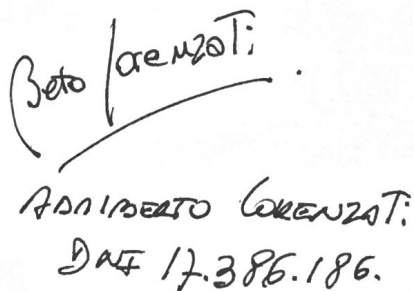 Beto Lorenzati.
ADALBERTO LORENZATI
DNI 17.386.186.